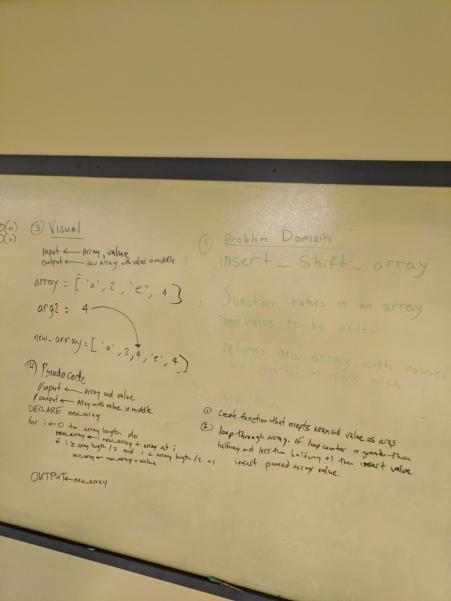 O(n)
O(n)
③ VISUAL
Input ← Array, value
Output ← new array with value in middle
array = ['a', 2, 'c', 4]
arg2 : 4
new_array = ['a', 2, 4, 'c', 4]
④ Pseudo Code
Input ← Array and value
Output ← Array with value in middle
DECLARE new_array
for i ← 0 to array length do
new_array ← new_array + array at i
if i ≥ array length /2 and i < array length /2 +1
new_array ← new_array + value
OUTPUT ← new_array
① Problem Domain
insert_Shift_array
function takes in an array
and value to be added
returns new array with passed
① Create function that accepts array and value as args
② loop through array. if loop counter is greater than
halfway and less than halfway +1 then insert value
insert passed array value.